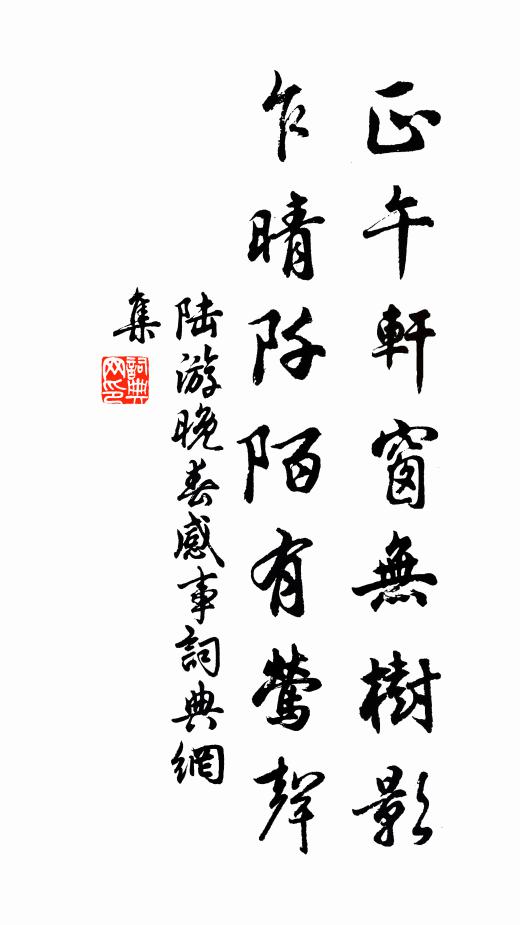 正午軒窗無樹影
乍晴阡陌有鶯聲
陆游晚春感事詞典網
集
詞典
网印